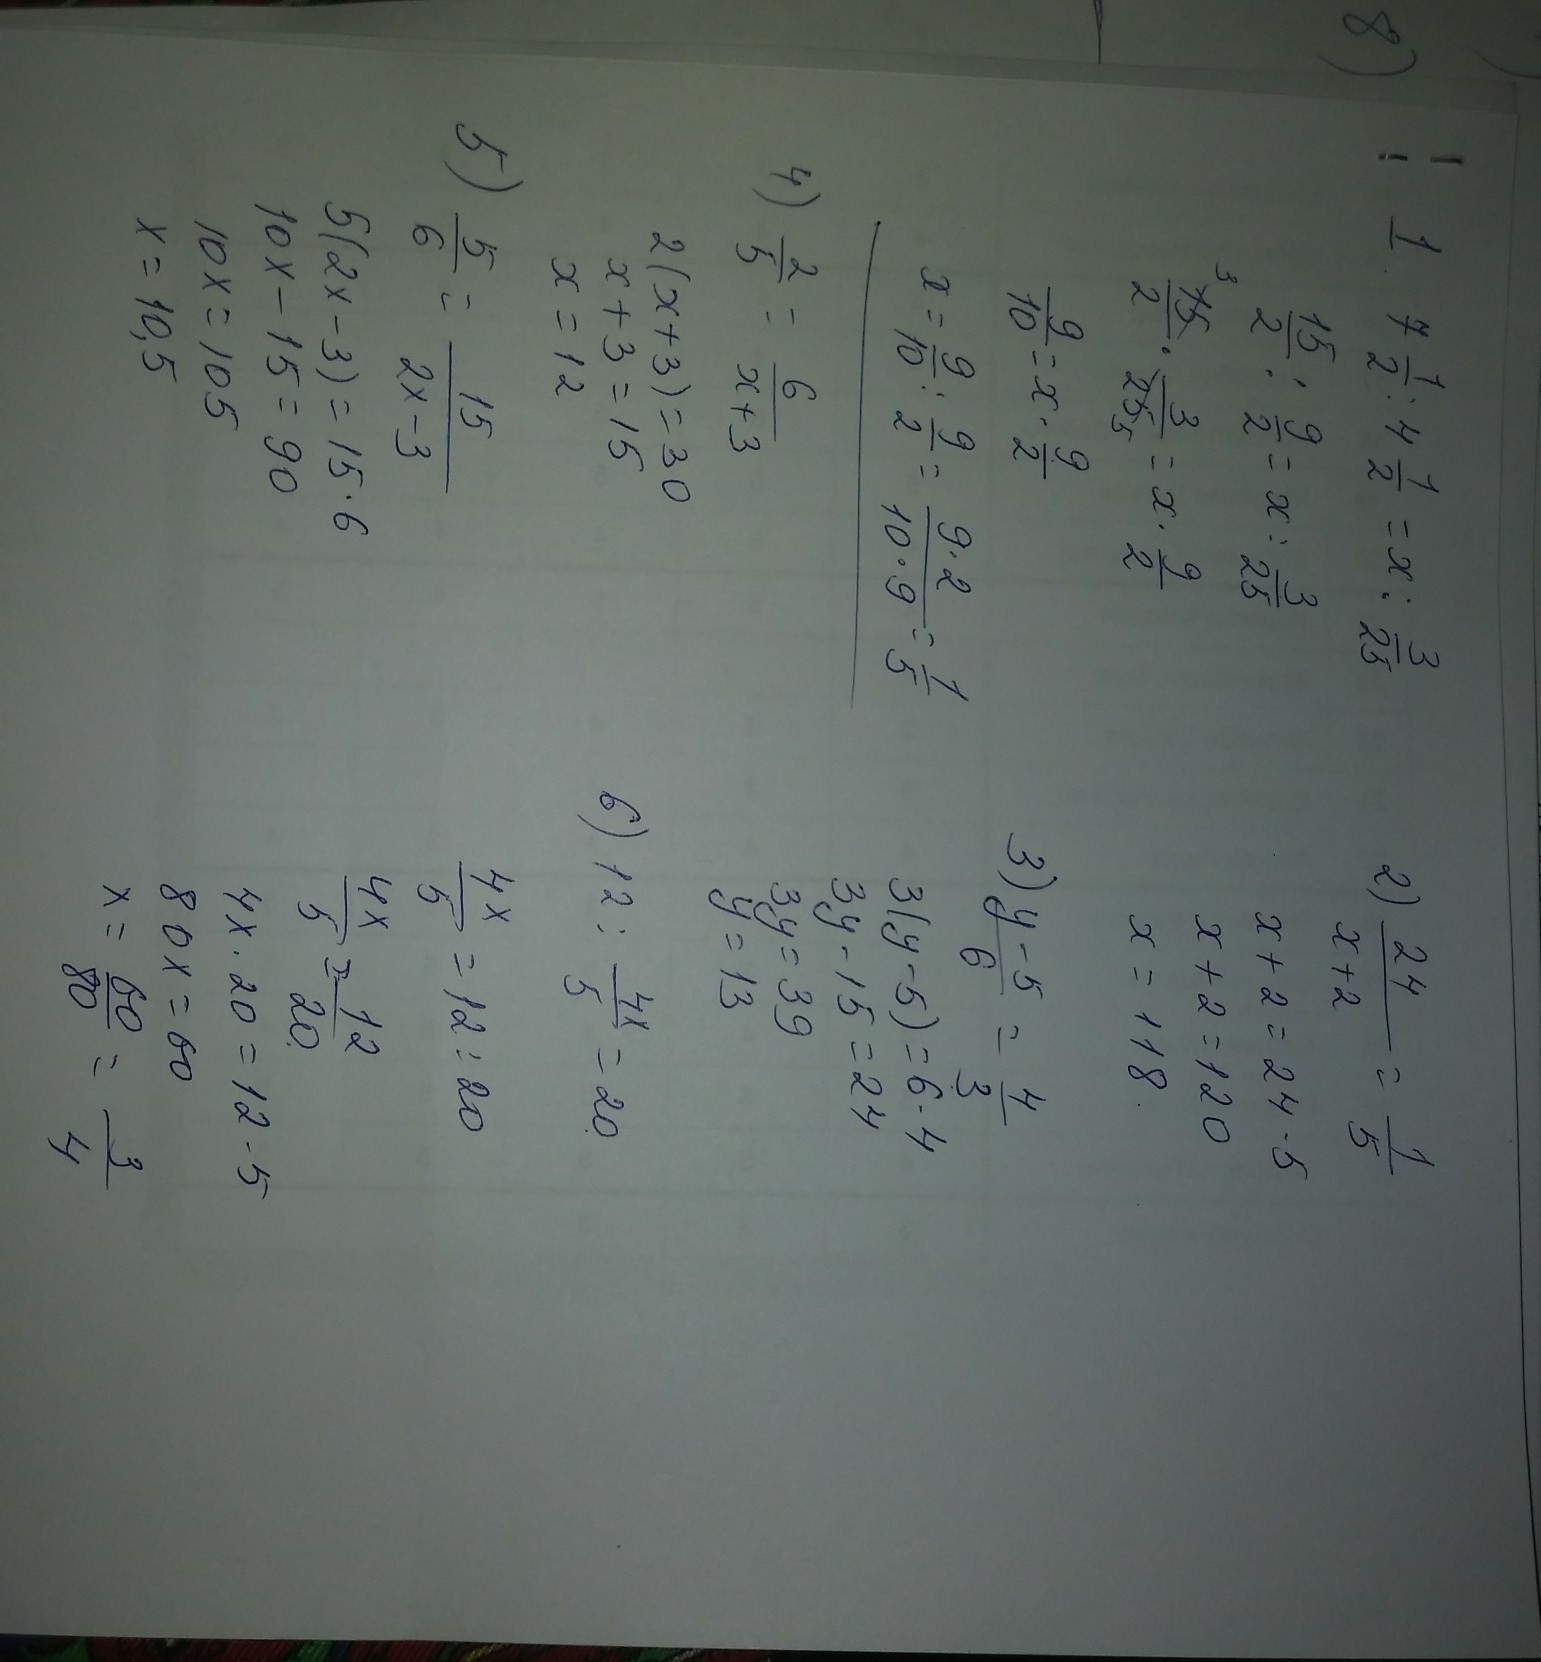 8)
1. 7 1/2 : 4 1/2 = x : 3/25
15/2 : 9/2 = x : 3/25
3 15/2 · 3/25 5 = x · 9/2
9/10 = x · 9/2
x = 9/10 : 9/2 = 9·2/10·9 = 1/5
2) 24/x+2 = 1/5
x+2 = 24·5
x+2 = 120
x = 118.
3) y-5/6 = 4/3
3(y-5) = 6·4
3y-15 = 24
3y = 39
y = 13
4) 2/5 = 6/x+3
2(x+3) = 30
x+3 = 15
x = 12
5) 5/6 = 15/2x-3
5(2x-3) = 15·6
10x-15 = 90
10x = 105
x = 10,5
6) 12 : 4x/5 = 20
4x/5 = 12 : 20
4x/5 = 12/20
4x·20 = 12·5
80x = 60
x = 60/80 = 3/4